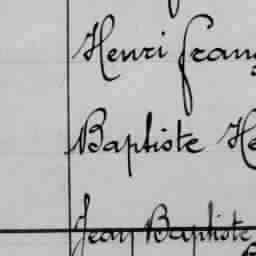 Henri Franç
Baptiste He
Jean Baptiste